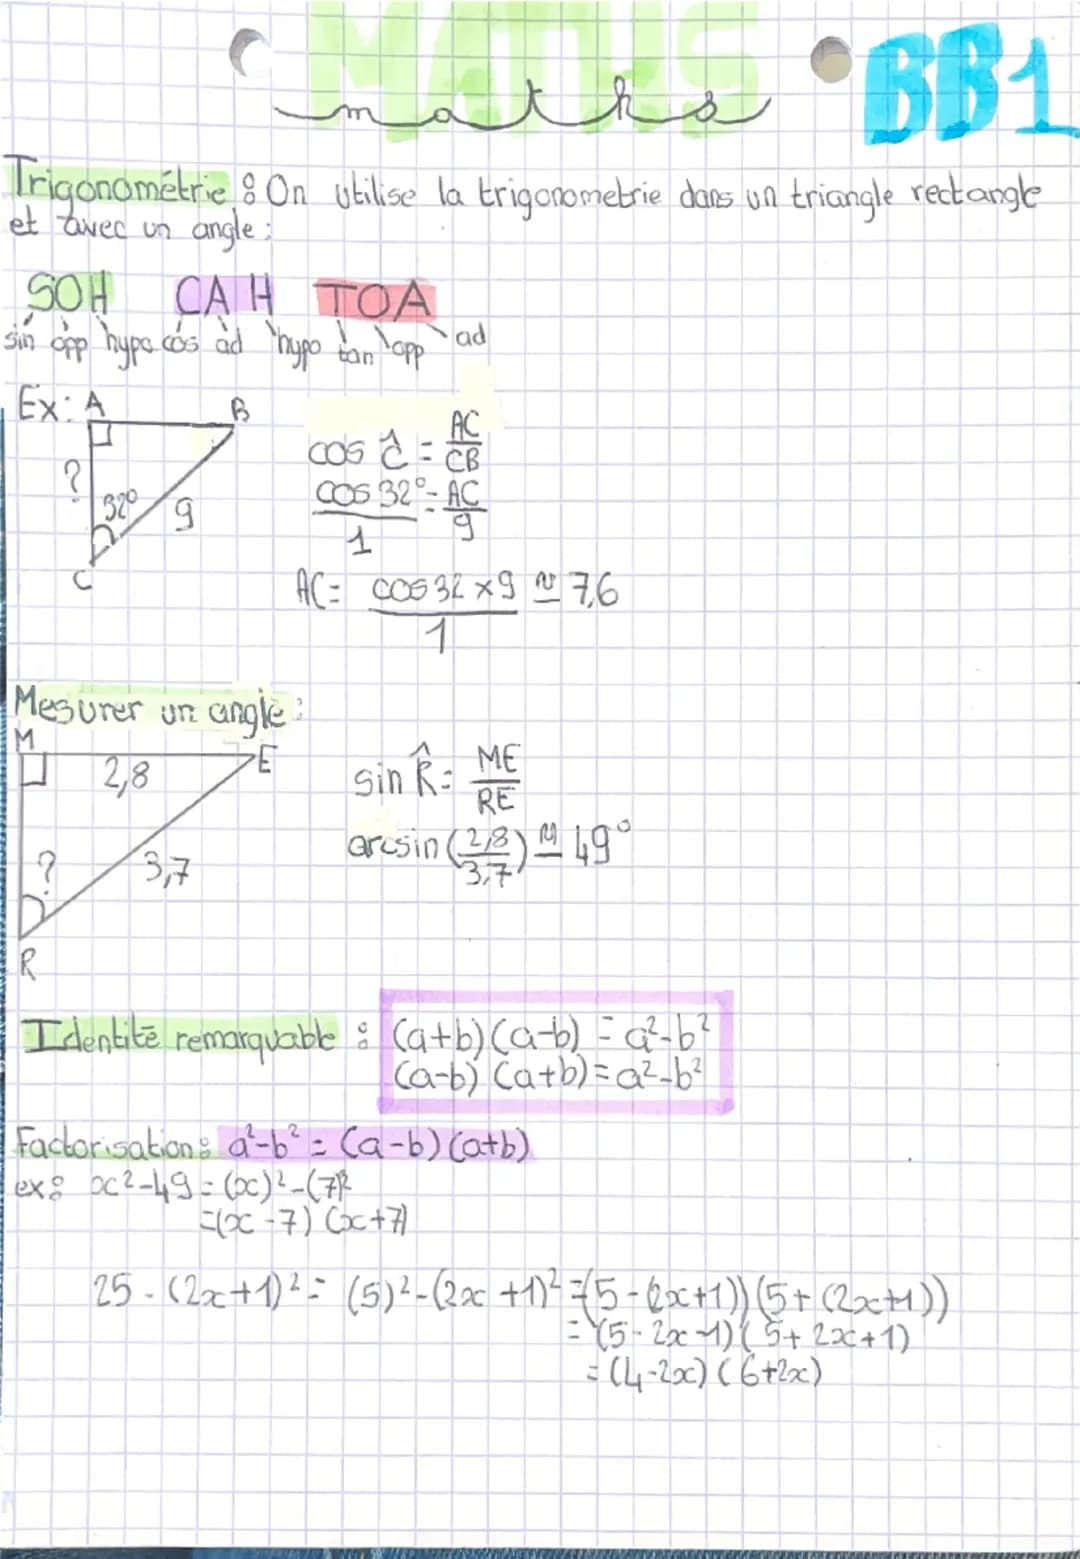 MATHS
maths
BB1
Trigonométrie : On utilise la trigonometrie dans un triangle rectangle
et avec un angle :
SOH CAH TOA
sin opp hypo cos ad hypo tan opp ad
Ex: A B
? 32° 9
C
cos Ĉ = AC/CB
cos 32°/1 = AC/9
AC = cos 32 × 9/1 ≃ 7,6
Mesurer un angle :
M 2,8 E
? 3,7
R
sin R̂ = ME/RE
arcsin (2,8/3,7) ≃ 49°
Identité remarquable : (a+b)(a-b) = a²-b²
(a-b)(a+b) = a²-b²
Factorisation : a²-b² = (a-b)(a+b)
ex : x²-49 = (x)²-(7)²
=(x-7)(x+7)
25-(2x+1)² = (5)²-(2x+1)² =(5-(2x+1))(5+(2x+1))
= (5-2x-1)(5+2x+1)
= (4-2x)(6+2x)